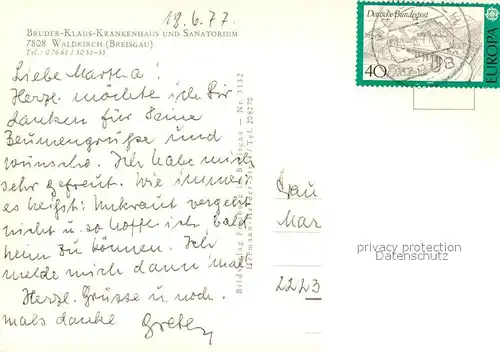 18.6.77
BRUDER-KLAUS-KRANKENHAUS UND SANATORIUM
7808 WALDKIRCH (BREISGAU)
Tel.: 07681 / 5033-35
Liebe Martha!
Herzl. möchte ich Dir
danken für Deine
Blumengrüße und
wünsche. Ich habe mich
sehr gefreut. Wie immer
es heißt: Unkraut vergeht
nicht u. so hoffe ich, bald
heim zu können. Ich
melde mich dann mal
Herzl. Grüsse u. noch
mals danke Gretel
Deutsche Bundespost
40
EUROPA
Frau
Mar
privacy protection
Datenschutz